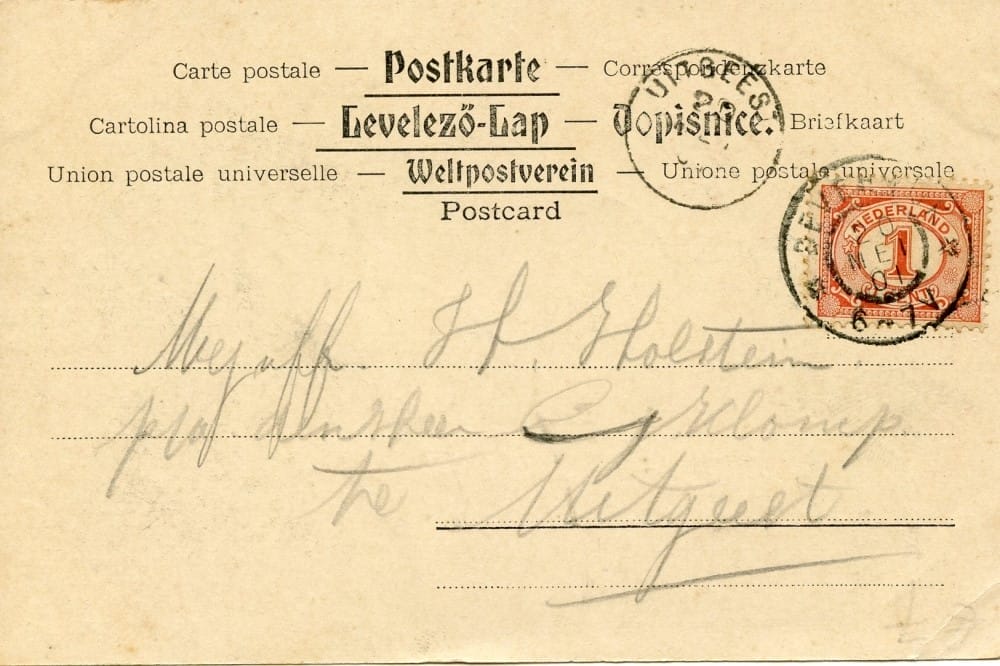 Carte postale — Postkarte — Correspondenzkarte
Cartolina postale — Levelező-Lap — Dopisnice. Briefkaart
Union postale universelle — Weltpostverein — Unione postale universale
Postcard
UITGEEST
20
NEDERLAND
1
CENT
BEVERW
20
MEI
01
6 - 7
Mejuff. H. Holstein
p/a den heer C
te Uitgeest